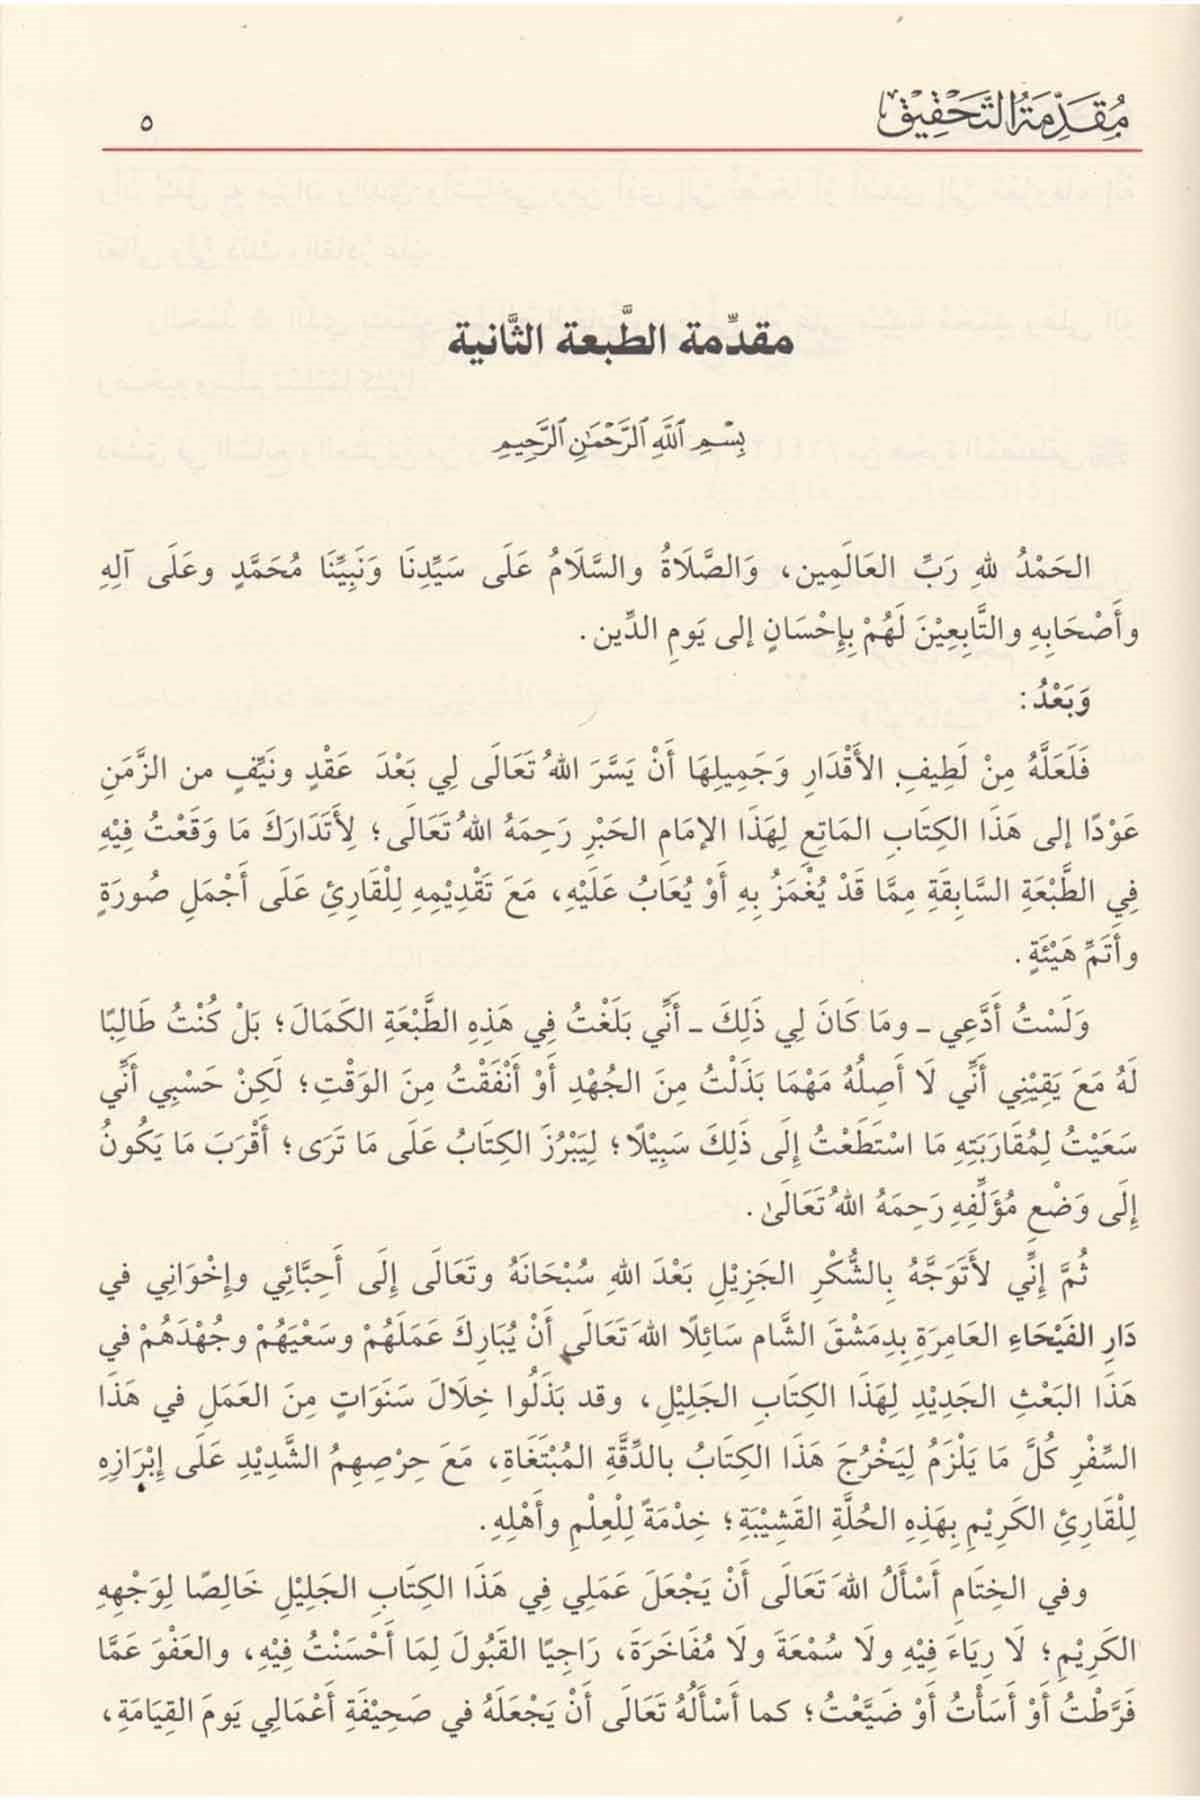 مُقَدِّمَةُ التَّحْقِيْقِ ٥
مقدِّمة الطَّبعة الثَّانية
بِسْمِ ٱللَّهِ ٱلرَّحْمَٰنِ ٱلرَّحِيمِ
الحَمْدُ للهِ رَبِّ العَالَمِين، وَالصَّلَاةُ والسَّلَامُ عَلَى سَيِّدِنَا وَنَبِيِّنَا مُحَمَّدٍ وعَلَى آلِهِ
وأَصْحَابِهِ والتَّابِعِيْنَ لَهُمْ بِإِحْسَانٍ إلى يَومِ الدِّين.
وَبَعْدُ:
فَلَعَلَّهُ مِنْ لَطِيفِ الأَقْدَارِ وَجَمِيلِهَا أَنْ يَسَّرَ اللهُ تَعَالَى لِي بَعْدَ عَقْدٍ ونَيِّفٍ من الزَّمَنِ
عَوْدًا إلى هَذَا الكِتَابِ المَاتِعِ لِهَذَا الإمَامِ الحَبْرِ رَحِمَهُ اللهُ تَعَالَى؛ لِأَتَدَارَكَ مَا وَقَعْتُ فِيْهِ
فِي الطَّبْعَةِ السَّابِقَةِ مِمَّا قَدْ يُغْمَزُ بِهِ أَوْ يُعَابُ عَلَيْهِ، مَعَ تَقْدِيْمِهِ لِلْقَارِئِ عَلَى أَجْمَلِ صُورَةٍ
وأتَمِّ هَيْئَةٍ.
وَلَسْتُ أَدَّعِي ـ ومَا كَانَ لِي ذَلِكَ ـ أَنِّي بَلَغْتُ فِي هَذِهِ الطَّبْعَةِ الكَمَالَ؛ بَلْ كُنْتُ طَالِبًا
لَهُ مَعَ يَقِيْنِي أَنِّي لَا أَصِلُهُ مَهْمَا بَذَلْتُ مِنَ الجُهْدِ أَوْ أَنْفَقْتُ مِنَ الوَقْتِ؛ لَكِنْ حَسْبِي أَنِّي
سَعَيْتُ لِمُقَارَبَتِهِ مَا اسْتَطَعْتُ إِلَى ذَلِكَ سَبِيْلًا؛ لِيَبْرُزَ الكِتَابُ عَلَى مَا تَرَى؛ أَقْرَبَ مَا يَكُونُ
إِلَى وَضْعِ مُؤَلِّفِهِ رَحِمَهُ اللهُ تَعَالَىٰ.
ثُمَّ إِنِّي لأَتَوَجَّهُ بِالشُّكْرِ الجَزِيْلِ بَعْدَ اللهِ سُبْحَانَهُ وتَعَالَى إِلَى أَحِبَّائِي وإِخْوَانِي في
دَارِ الفَيْحَاءِ العَامِرَةِ بِدِمَشْقَ الشَّام سَائِلًا اللهَ تَعَالَى أَنْ يُبَارِكَ عَمَلَهُمْ وسَعْيَهُمْ وجُهْدَهُمْ في
هَذَا البَعْثِ الجَدِيْدِ لِهَذَا الكِتَابِ الجَلِيْلِ، وقد بَذَلُوا خِلَالَ سَنَوَاتٍ مِنَ العَمَلِ في هَذَا
السِّفْرِ كُلَّ مَا يَلْزَمُ لِيَخْرُجَ هَذَا الكِتَابُ بالدِّقَّةِ المُبْتَغَاةِ، مَعَ حِرْصِهِمُ الشَّدِيْدِ عَلَى إِبْرَازِهِ
لِلْقَارِئِ الكَرِيْمِ بِهَذِهِ الحُلَّةِ القَشِيْبَةِ؛ خِدْمَةً لِلْعِلْمِ وأَهْلِهِ.
وفي الخِتَامِ أَسْأَلُ اللهَ تَعَالَى أَنْ يَجْعَلَ عَمَلِي فِي هَذَا الكِتَابِ الجَلِيْلِ خَالِصًا لِوَجْهِهِ
الكَرِيْمِ؛ لَا رِيَاءَ فِيْهِ ولَا سُمْعَةَ ولَا مُفَاخَرَةَ، رَاجِيًا القَبُولَ لِمَا أَحْسَنْتُ فِيْهِ، والعَفْوَ عَمَّا
فَرَّطْتُ أَوْ أَسَأْتُ أَوْ ضَيَّعْتُ؛ كما أَسْأَلُهُ تَعَالَى أَنْ يَجْعَلَهُ في صَحِيْفَةِ أَعْمَالِي يَومَ القِيَامَةِ،